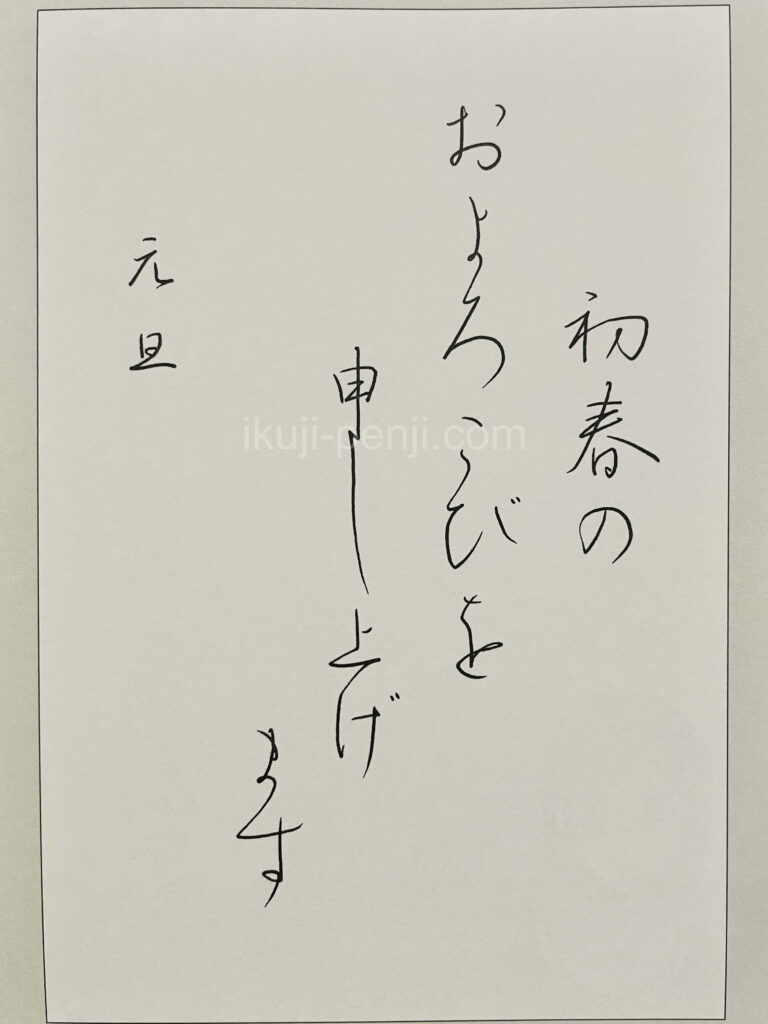 初春の
およろこびを
申し上げ
ます
元旦
ikuji-penji.com